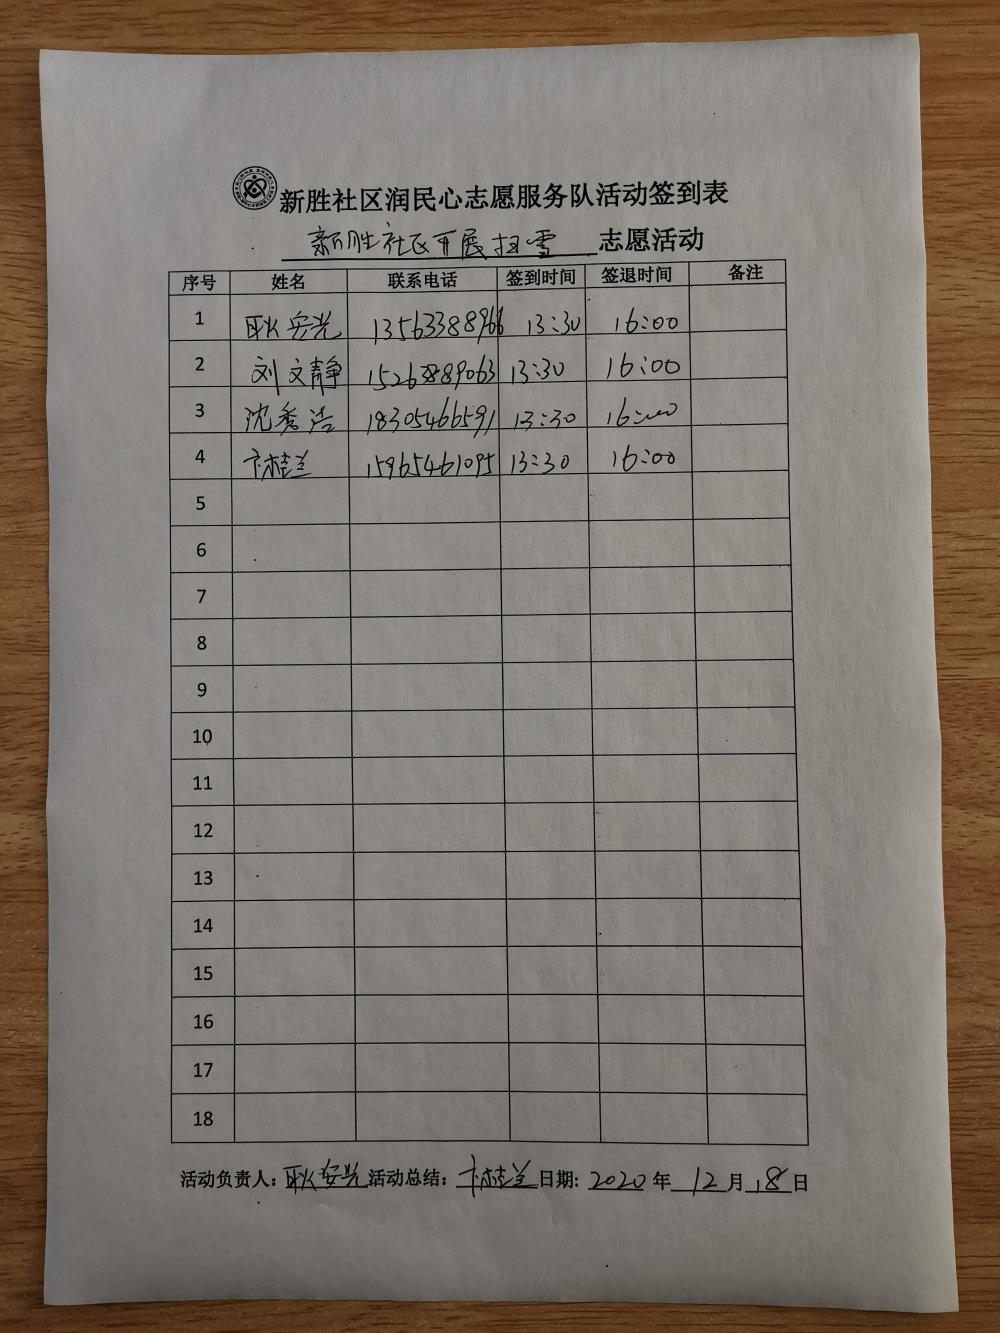 新胜社区润民心志愿服务队活动签到表
新胜社区开展扫雪 志愿活动
序号 姓名 联系电话 签到时间 签退时间 备注
1 耿安光 13563388966 13:30 16:00
2 刘文静 15263889063 13:30 16:00
3 沈秀洁 18305466591 13:30 16:00
4 卞桂兰 15965461095 13:30 16:00
5
6
7
8
9
10
11
12
13
14
15
16
17
18
活动负责人：耿安光 活动总结：卞桂兰 日期：2020 年 12 月 18 日